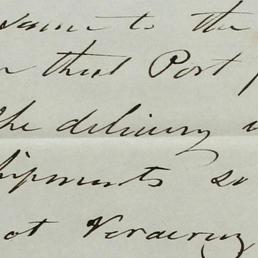 same to the
that Port
the delivery
shipments so
at Veracruz